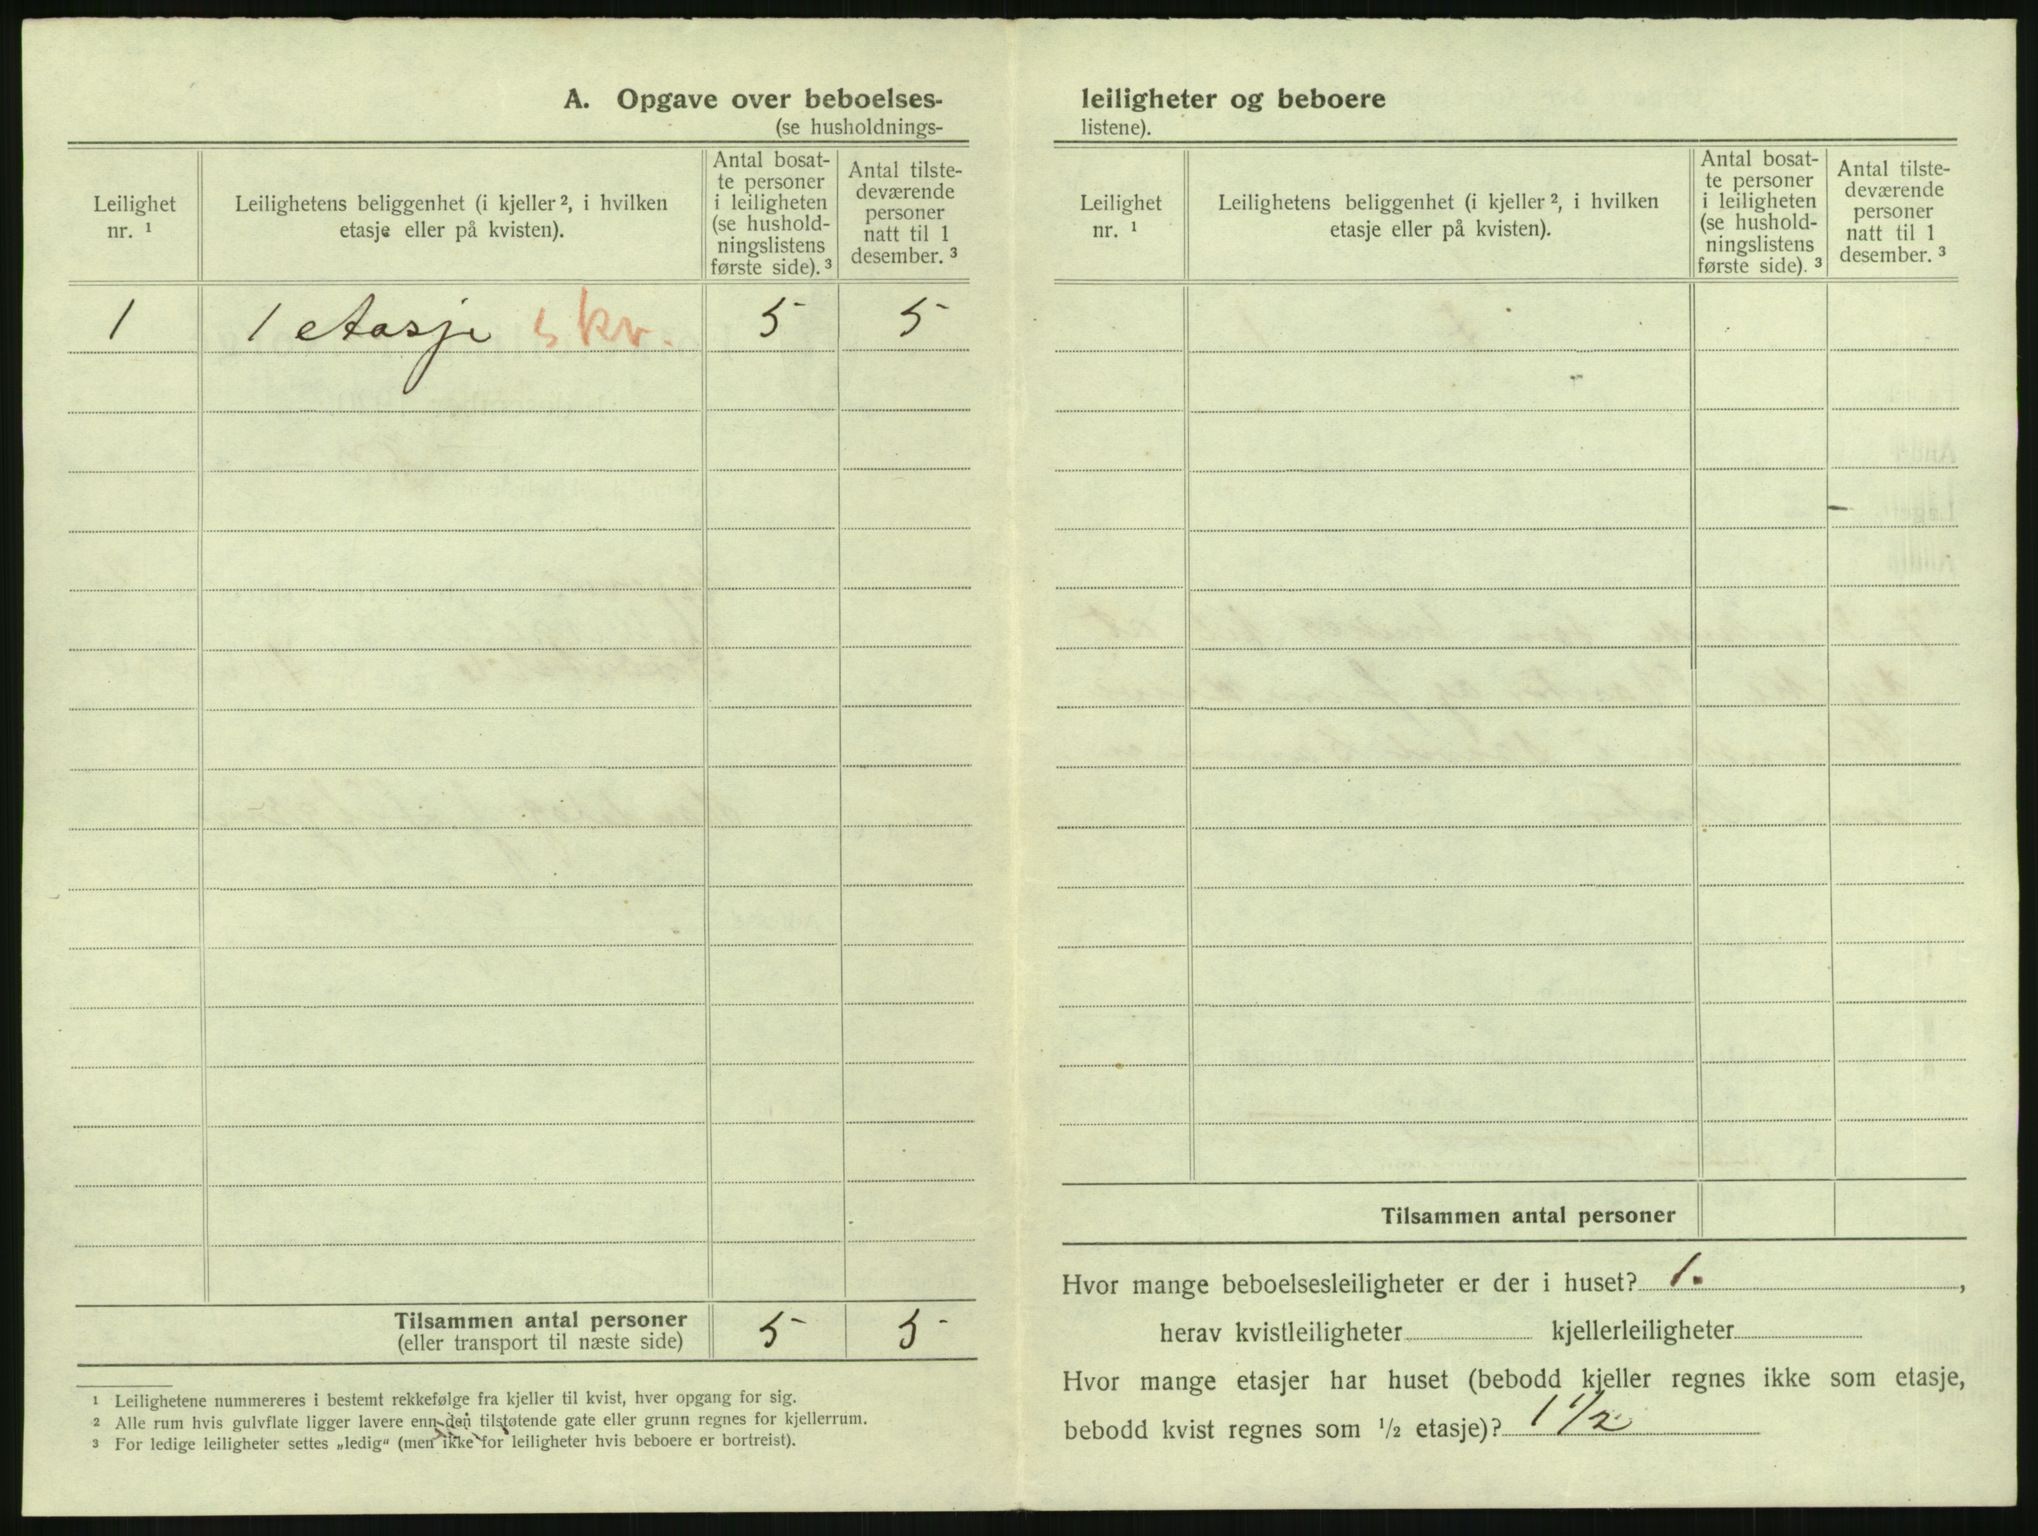 A. Opgave over beboelses-
(se husholdnings-
Leilighet nr. 1
Leilighetens beliggenhet (i kjeller ², i hvilken etasje eller på kvisten).
Antal bosat-
te personer
i leiligheten
(se hushold-
ningslistens
første side). ³
Antal tilste-
deværende
personer
natt til 1
desember. ³
1 1 etasje s kv. 5 5
Tilsammen antal personer 5 5
(eller transport til næste side)
¹ Leilighetene nummereres i bestemt rekkefølge fra kjeller til kvist, hver opgang for sig.
² Alle rum hvis gulvflate ligger lavere enn den tilstøtende gate eller grunn regnes for kjellerrum.
³ For ledige leiligheter settes „ledig“ (men ikke for leiligheter hvis beboere er bortreist).
leiligheter og beboere
listene).
Leilighet
nr. ¹
Leilighetens beliggenhet (i kjeller ², i hvilken
etasje eller på kvisten).
Antal bosat-
te personer
i leiligheten
(se hushold-
ningslistens
første side). ³
Antal tilste-
deværende
personer
natt til 1
desember. ³
Tilsammen antal personer
Hvor mange beboelsesleiligheter er der i huset? 1. ,
herav kvistleiligheter kjellerleiligheter
Hvor mange etasjer har huset (bebodd kjeller regnes ikke som etasje,
bebodd kvist regnes som ½ etasje)? 1 1/2